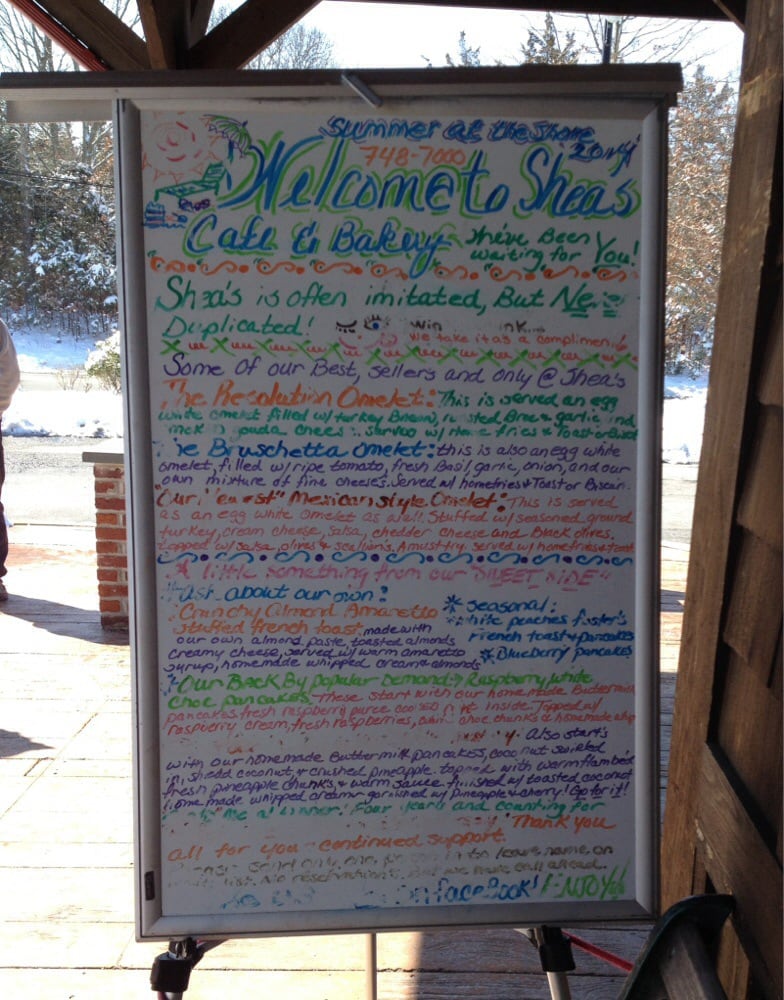 Summer at the Shore
748-7000 2014
Welcome to Shea's
Cafe & Bakery We've Been
waiting for You!
Shea's is often imitated, But Never
Duplicated! win
We take it as a compliment
Some of our Best, sellers and only @ Shea's
The Resolution Omelet: This is served an egg
white omelet filled w/ turkey Bacon, roasted & garlic and
gouda cheese served w/ Home fries & Toast or
The Bruschetta Omelet: this is also an egg white
omelet, filled w/ ripe tomato, fresh Basil, garlic, onion, and our
own mixture of fine cheeses. Served w/ homefries & Toast or Biscuin.
"Our Mexican style Omelet: This is served
as an egg white omelet as well. Stuffed w/ seasoned ground
turkey, cream cheese, salsa, chedder cheese and Black olives.
topped w/ salsa, olives & scallions. A must try. served w/ homefries & toast
A little something from our "SWEET SIDE"
Ask about our own!
Crunchy Almond Amaretto * Seasonal:
stuffed french toast, made with White peaches foster's
our own almond paste, toasted almonds French toast & pancakes
creamy cheese, served w/ warm amaretto * Blueberry pancakes
syrup, homemade whipped cream & almonds
Our Back By popular Demand → Raspberry, white
choc pancakes. These start with our homemade Buttermilk
pancakes, fresh raspberry puree cooked inside. Topped w/
raspberry cream, fresh raspberries, choc chunks & homemade whip
Also start's
with our homemade Buttermilk pancakes, coconut swirled
in, shedd coconut, & crushed pineapple. topped with warm flambed
fresh pineapple chunks, & warm sauce. finished w/ toasted coconut
home made whipped cream & garnished w/ pineapple & cherry! Go for it!
a winner! Four years and counting for
Thank you
all for you continued support.
send only one to leave name on
list. No reservations. But we make call ahead.
on FaceBook! ENJOY